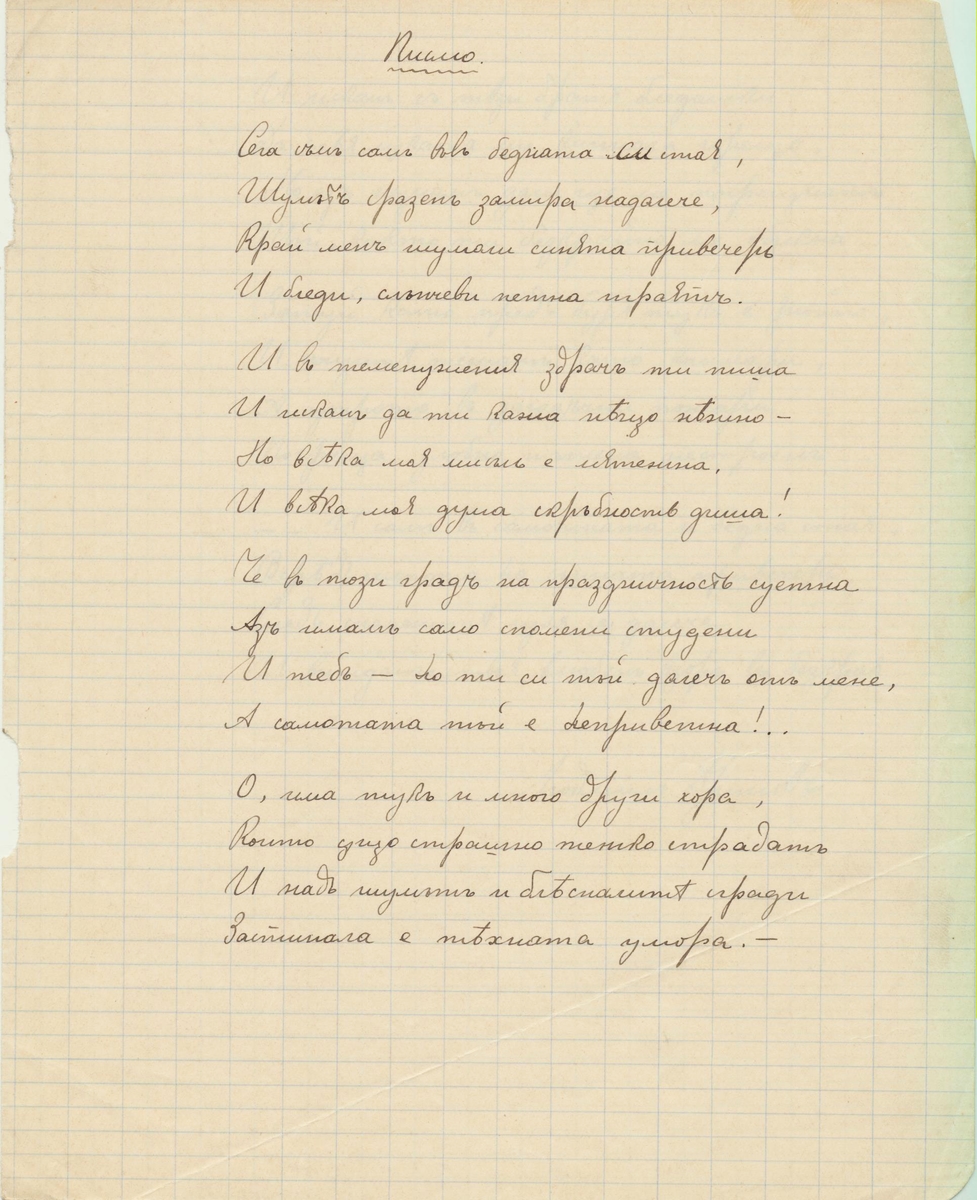 Писмо.
Сега съмъ самъ въвъ бедната си стая,
Шумътъ фазенъ замира надалече,
Край менъ шумаги синята привечерь
И бледи, слънчеви петна траятъ.
И въ теменужния здрачъ ти пиша
И искамъ да ти кажа нѣщо нѣжно —
Но всѣка моя мисъль е мятежна,
И всѣка моя дума скръбность диша!
Че въ този градъ на праздничность суетна
Азъ имамъ само спомени студени
И тебъ — но ти си тъй далечъ отъ мене,
А самотата тъй е неприветна!..
О, има тукъ и много други хора,
Които също страшно тежко страдатъ
И надъ шумътъ и блѣсналитѣ сгради
Застинала е тѣхната умора. —